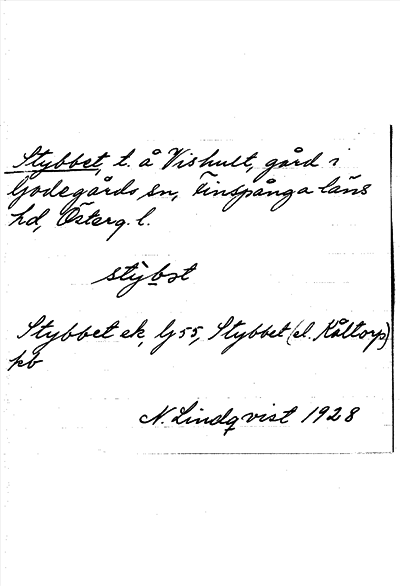 Stybbet, t. å Vishult, gård i
Godegårds sn, Finspånga läns
hd, Österg. l.
stỳbst
Stybbet ek, Gj 55, Stybbet (el. Kåltorp)
kb
N. Lindqvist 1928